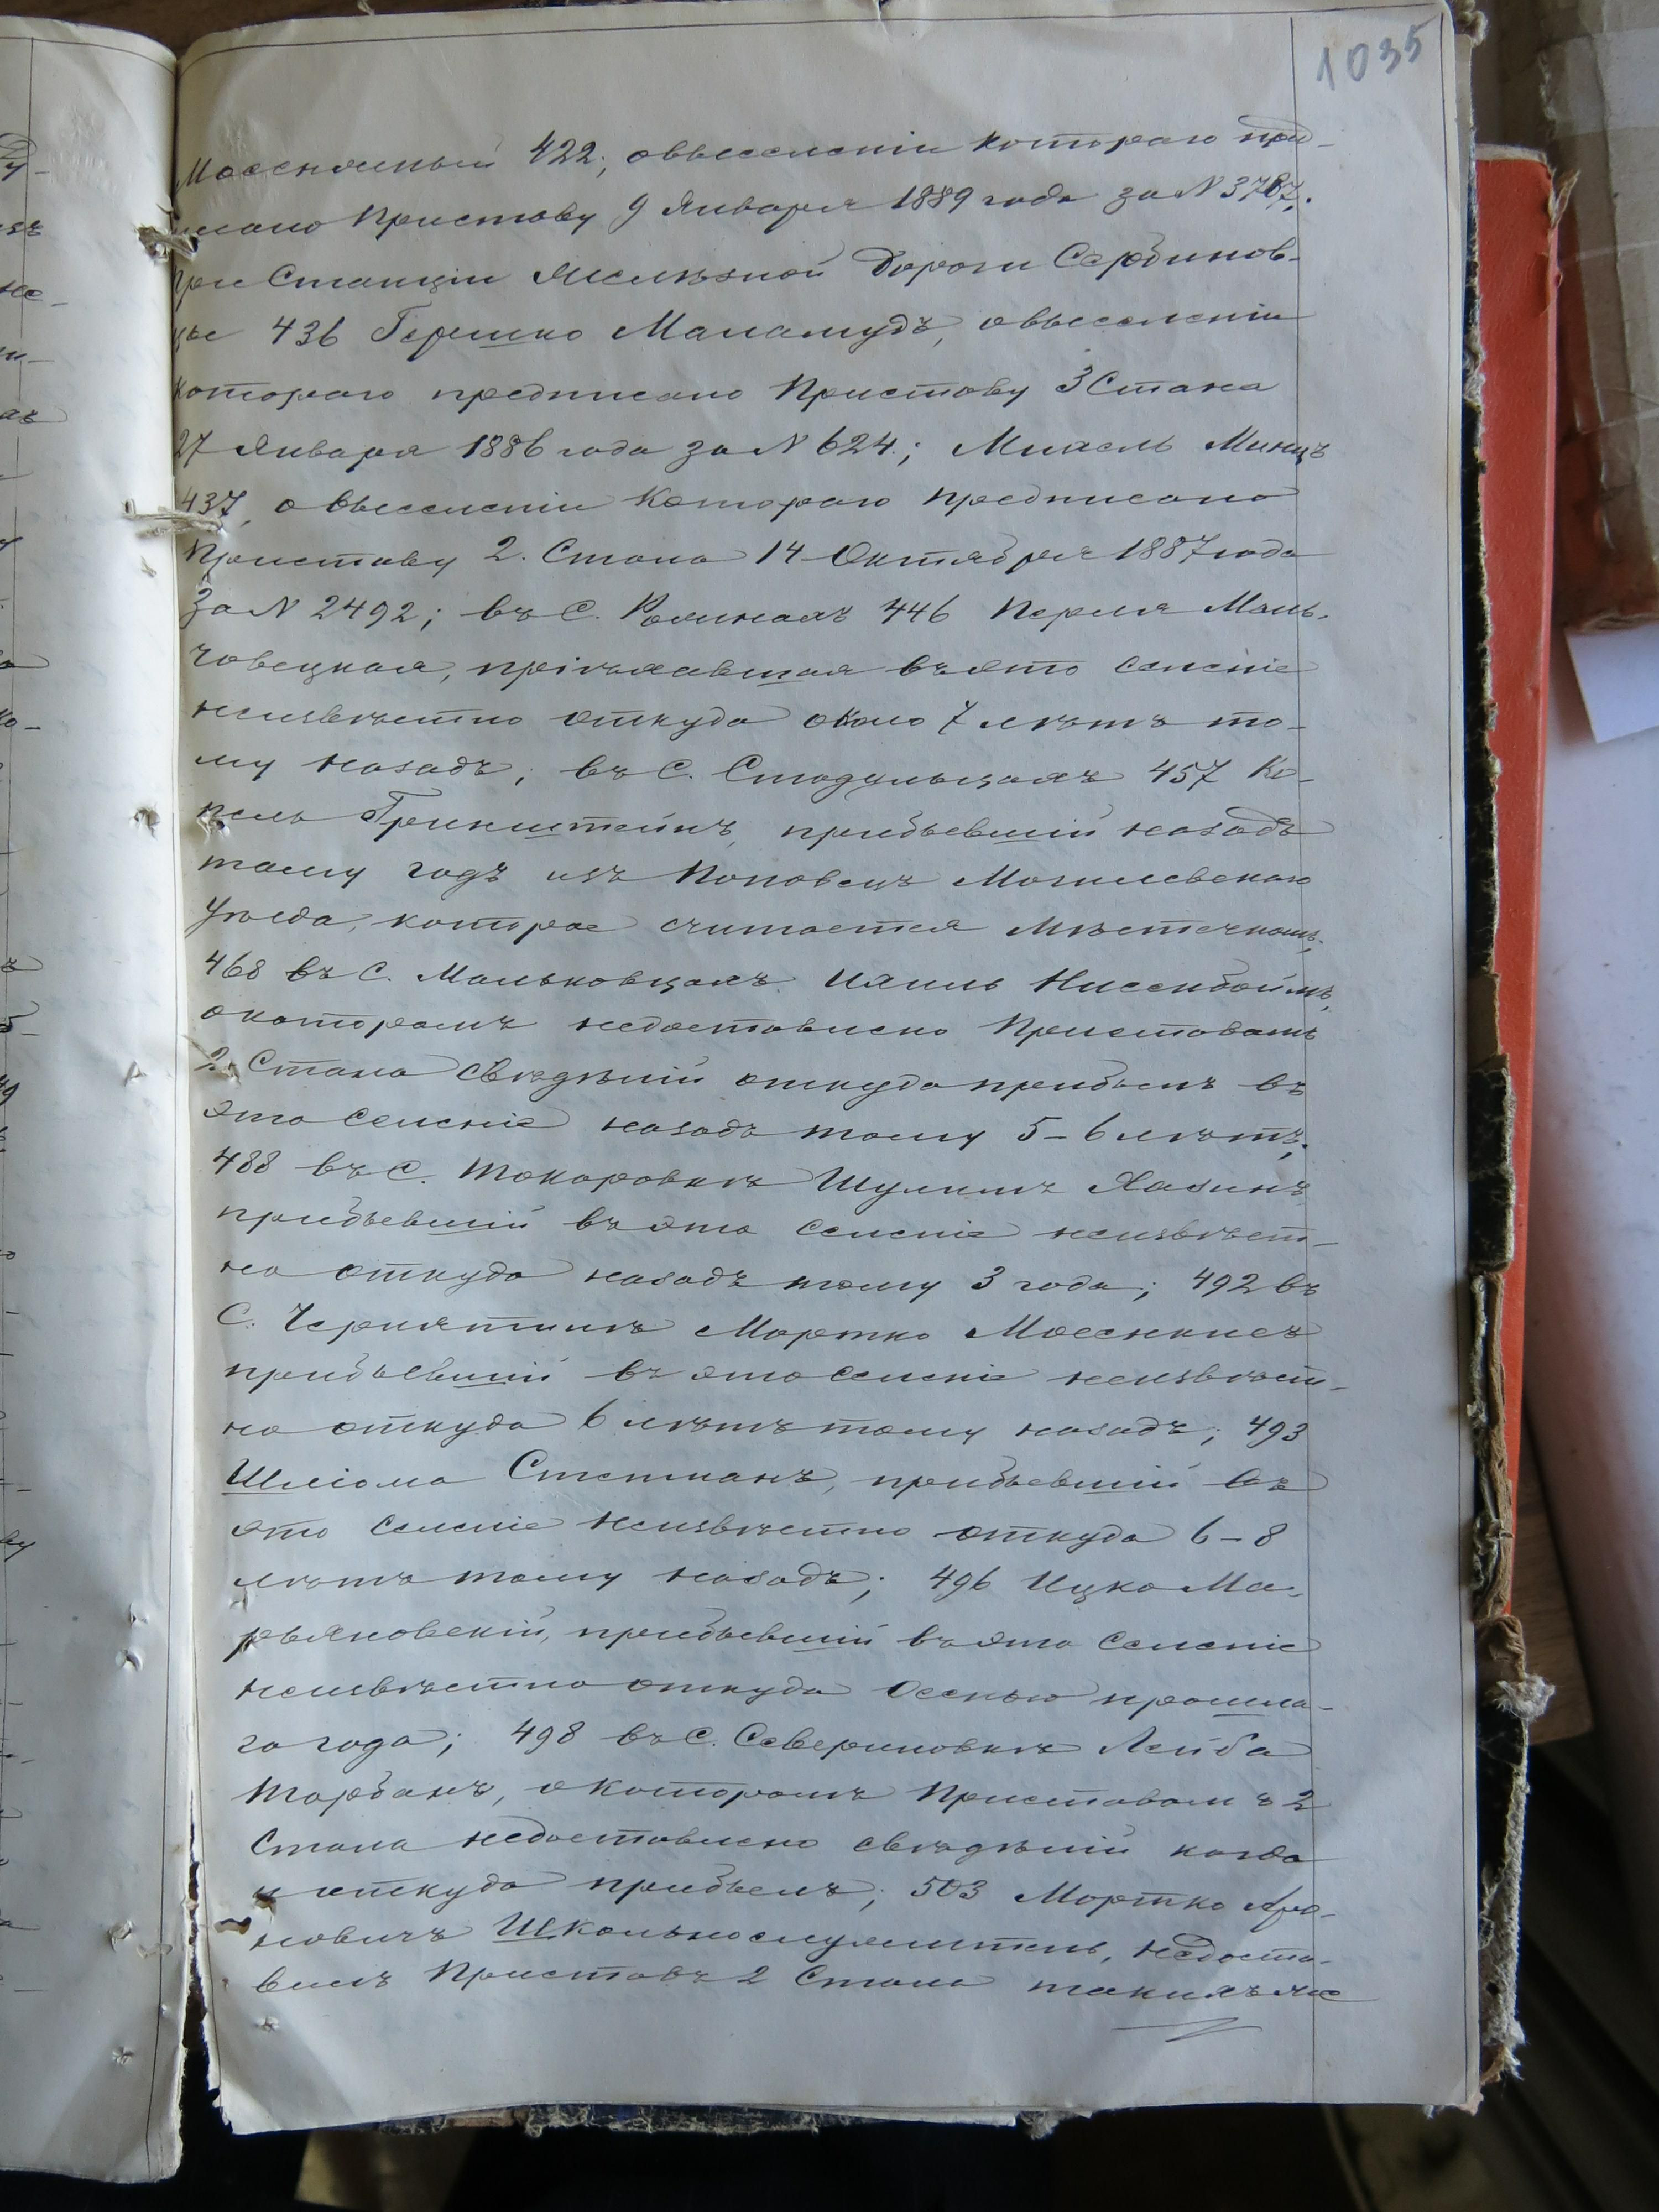 1035
422, о выселеніи котораго пред-
писано Приставу 9 Января 1889 года за N 3787;
при Станціи Желѣзной дороги Сербинов-
цы 436 Гершко Маламудъ, о выселеніи
котораго предписано Приставу 3 Стана
27 Января 1886 года за N 624; Михель Минцъ
437, о выселеніи котораго предписано
Приставу 2. Стана 14 Октября 1887 года
за N 2492; въ с. 446 Перля Мань-
човецкая, пріѣхавшая въ это селеніе
неизвѣстно откуда около 7 лѣтъ то-
му назадъ; въ С. Стодульцахъ 457 Ко-
пель Гринштейнъ, прибывшій назадъ
тому годъ изъ Поповецъ Могилевскаго
уѣзда, которое считается мѣстечкомъ;
468 въ С. Мальковцахъ Ихиль Нисенбоймъ,
о которомъ недоставлено Приставомъ
2. Стана свѣдѣній откуда прибылъ въ
это селеніе назадъ тому 5-6 лѣтъ;
488 въ С. Токаровкѣ Шулимъ Хазинъ
прибывшій въ это селеніе неизвѣст-
но откуда назадъ тому 3 года; 492 въ
С. Чернятинѣ Мортко
прибывшій въ это селеніе неизвѣст-
но откуда 6 лѣтъ тому назадъ; 493
Шліома Стетманъ, прибывшій въ
это селеніе неизвѣстно откуда 6-8
лѣтъ тому назадъ; 496 Ицко Ма-
рьяновскій, прибывшій въ это селеніе
неизвѣстно откуда осенью прошла-
го года; 498 въ С. Севериновкѣ Лейба
Торбанъ, о которомъ Приставомъ 2
Стана недоставлено свѣдѣній когда
и откуда прибылъ; 503 Мортко Аро-
новичъ Школьнослужитель, недоста-
вилъ Приставъ 2 Стана такихъ же